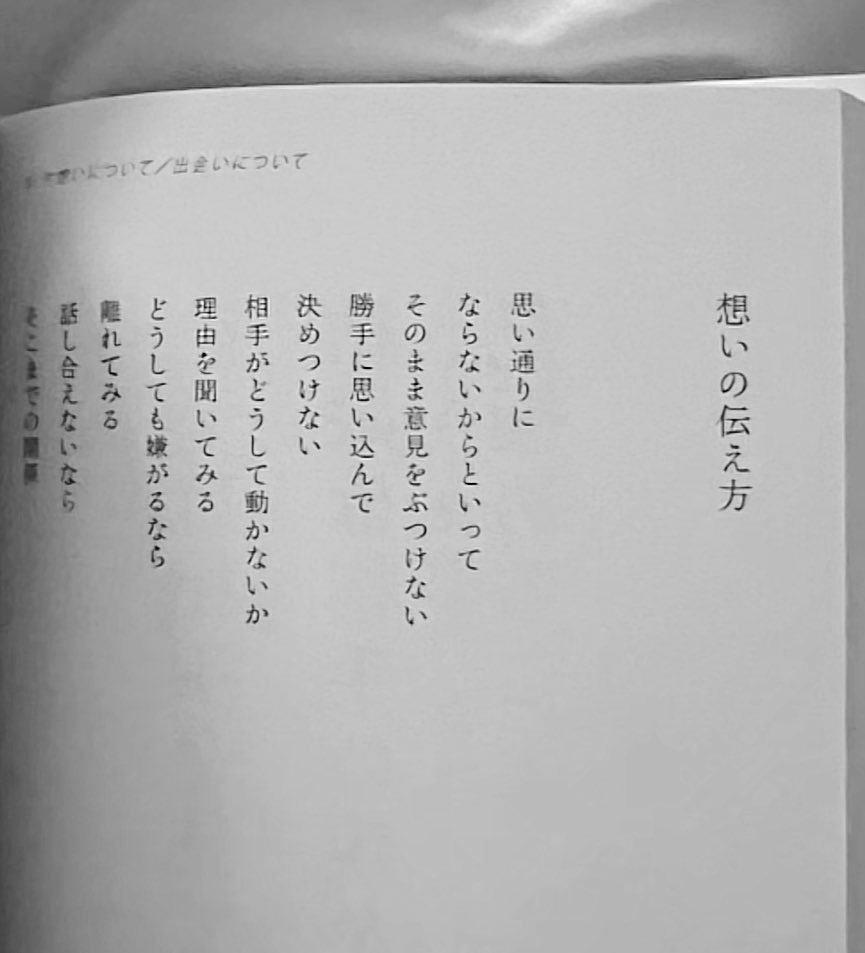 想いについて／出会いについて
想いの伝え方
思い通りに
ならないからといって
そのまま意見をぶつけない
勝手に思い込んで
決めつけない
相手がどうして動かないか
理由を聞いてみる
どうしても嫌がるなら
離れてみる
話し合えないなら
そこまでの関係